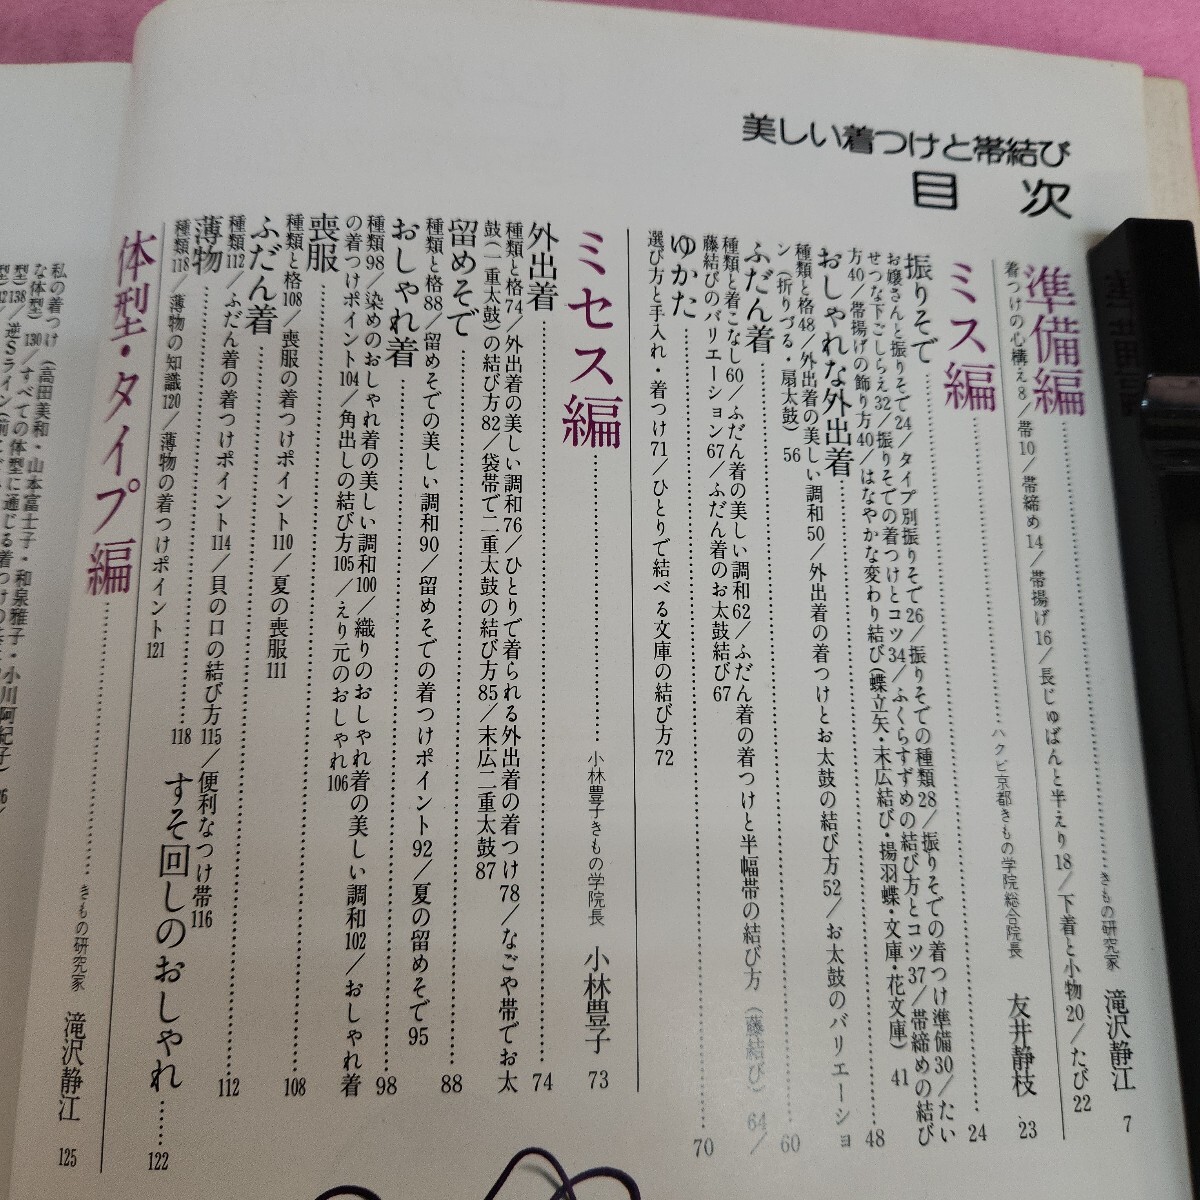 美しい着つけと帯結び
目次
準備編 きもの研究家 滝沢静江 7
着つけの心構え8／帯10／帯締め14／帯揚げ16／長じゅばんと半えり18／下着と小物20／たび22
ミス編 ハクビ京都きもの学院総合院長 友井静枝 23
振りそで 24
お嬢さんと振りそで24／タイプ別振りそで26／振りそでの種類28／振りそでの着つけ準備30／たい
せつな下ごしらえ32／振りそでの着つけとコツ34／ふくらすずめの結び方とコツ37／帯締めの結び
方40／帯揚げの飾り方40／はなやかな変わり結び（蝶立矢・末広結び・揚羽蝶・文庫・花文庫）41
おしゃれな外出着 48
種類と格48／外出着の美しい調和50／外出着の着つけとお太鼓の結び方52／お太鼓のバリエーショ
ン（折りづる・扇太鼓）56
ふだん着 60
種類と着こなし60／ふだん着の美しい調和62／ふだん着の着つけと半幅帯の結び方（藤結び）64／
藤結びのバリエーション67／ふだん着のお太鼓結び67
ゆかた 70
選び方と手入れ・着つけ71／ひとりで結べる文庫の結び方72
ミセス編 小林豊子きもの学院長 小林豊子 73
外出着 74
種類と格74／外出着の美しい調和76／ひとりで着られる外出着の着つけ78／なごや帯でお太
鼓（一重太鼓）の結び方82／袋帯で二重太鼓の結び方85／末広二重太鼓87
留めそで 88
種類と格88／留めそでの美しい調和90／留めそでの着つけポイント92／夏の留めそで95
おしゃれ着 98
種類98／染めのおしゃれ着の美しい調和100／織りのおしゃれ着の美しい調和102／おしゃれ着
の着つけポイント104／角出しの結び方105／えり元のおしゃれ106
喪服 108
種類と格108／喪服の着つけポイント110／夏の喪服111
ふだん着 112
種類112／ふだん着の着つけポイント114／貝の口の結び方115／便利なつけ帯116
薄物 118
種類118／薄物の知識120／薄物の着つけポイント121
すそ回しのおしゃれ 122
体型・タイプ編 きもの研究家 滝沢静江 125
私の着つけ（高田美和・山本富士子・和泉雅子・小川阿紀子）
な体型）130／すべての体型に通じる着つけの
型）138／逆Sライン（前